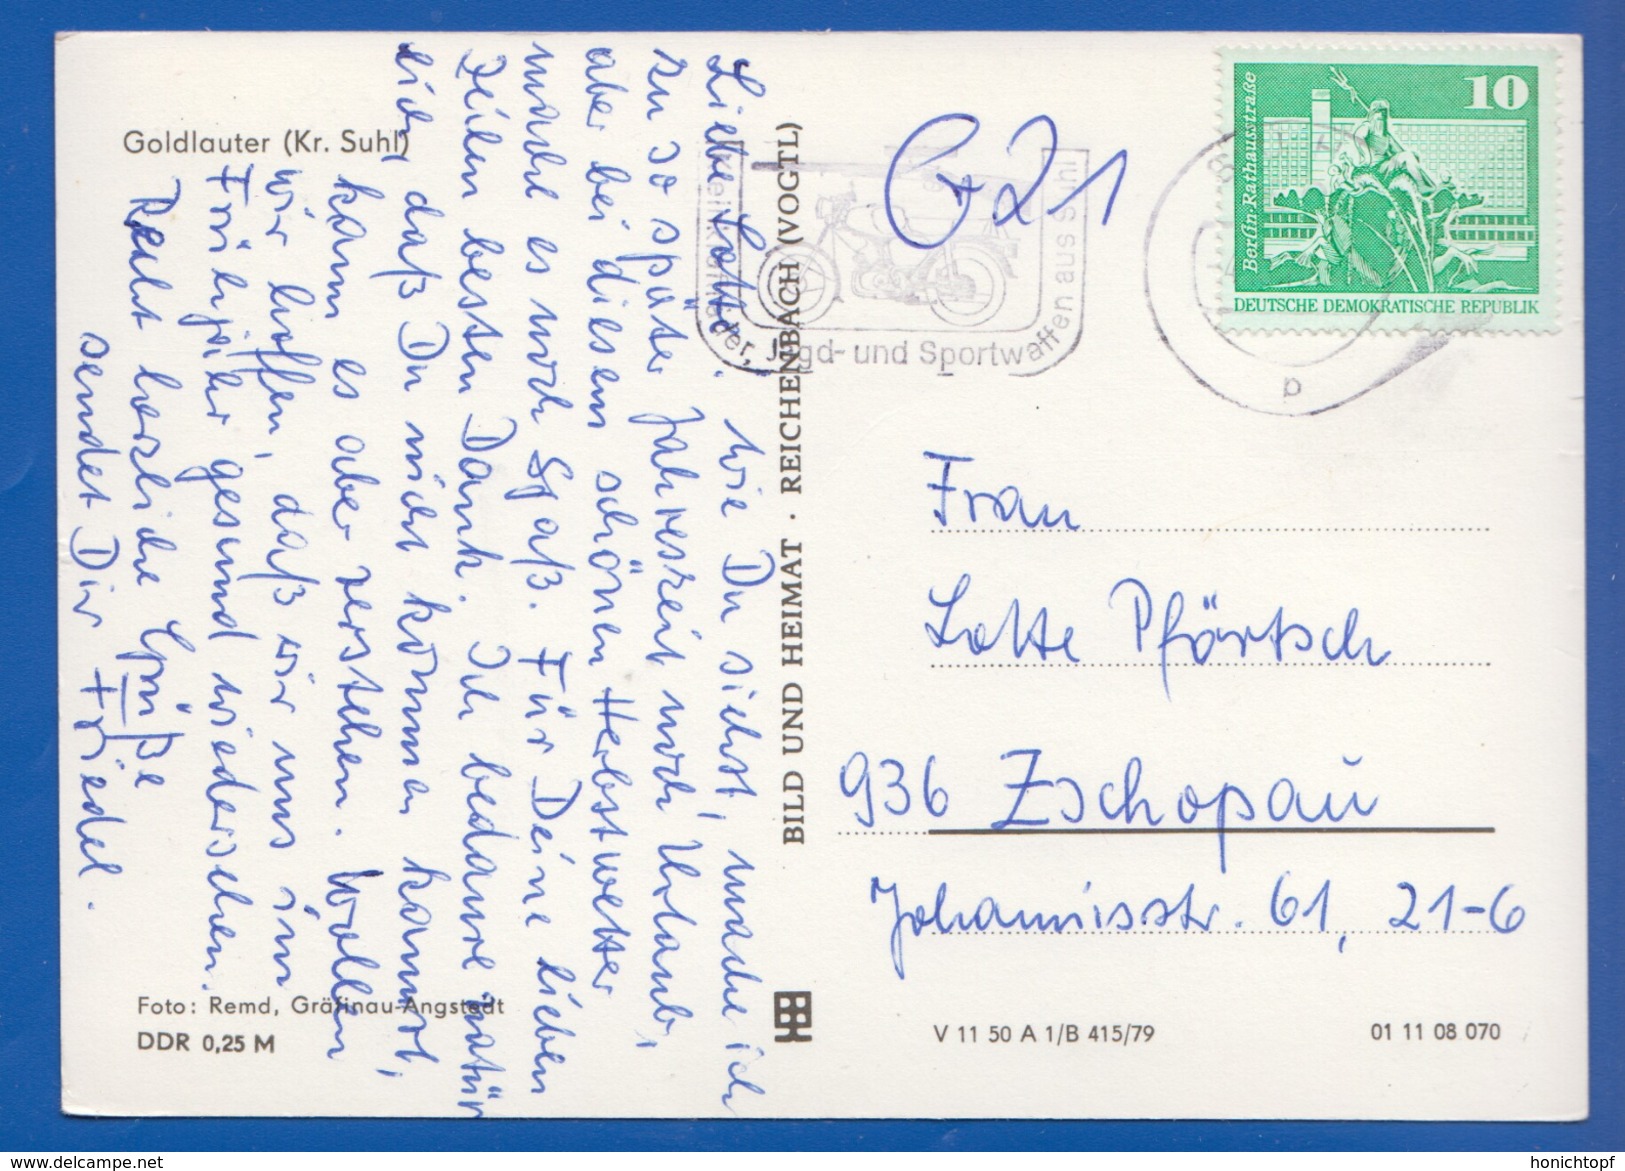 Goldlauter (Kr. Suhl)
Liebe Lotte! Wie Du siehst, mache ich
zu so später Jahreszeit noch Urlaub,
aber bei diesem schönen Herbstwetter
macht es noch Spaß. Für Deine lieben
Zeilen besten Dank. Ich bedaure natür
lich, daß Du nicht kommen kannst,
kann es aber verstehen. Wollen
wir hoffen, daß wir uns im
Frühjahr gesund wiedersehen.
Recht herzliche Grüße
sendet Dir Friedel.
Foto: Remd, Gräfinau-Angstedt
DDR 0,25 M
BILD UND HEIMAT · REICHENBACH (VOGTL)
Kleinkrafträder, Jagd- und Sportwaffen aus Suhl
G 21
10
Berlin-Rathausstraße
DEUTSCHE DEMOKRATISCHE REPUBLIK
p
Frau
Lotte Pförtsch
936 Zschopau
Johannisstr. 61, 21-6
V 11 50 A 1/B 415/79
01 11 08 070
delcampe.net
honichtopf